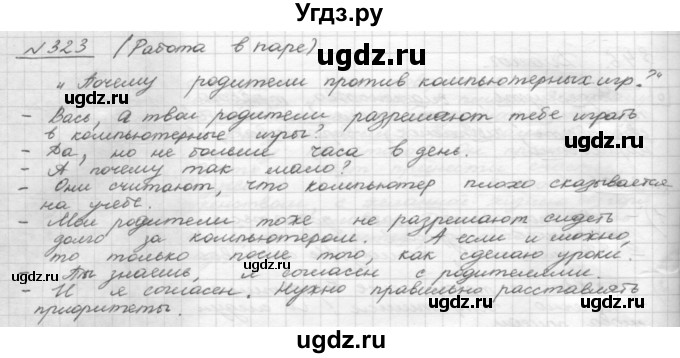 Угдз.ру
№323 (Работа в паре)
gdz.ru
„Почему родители против компьютерных игр?“
- Вась, а твои родители разрешают тебе играть
в компьютерные игры?
- Да, но не больше часа в день.
- А почему так мало?
- Они считают, что компьютер плохо сказывается
на учебе.
- Мои родители тоже не разрешают сидеть
долго за компьютером. А если и можно,
то только после того, как сделаю уроки.
- Ты знаешь, я согласен с родителями.
- И я согласен. Нужно правильно расставлять
приоритеты.
ugdz.ru
ugdz.ru
ugdz.ru
ugdz.ru
ugdz.ru
ugdz.ru
ugdz.ru
ugdz.ru